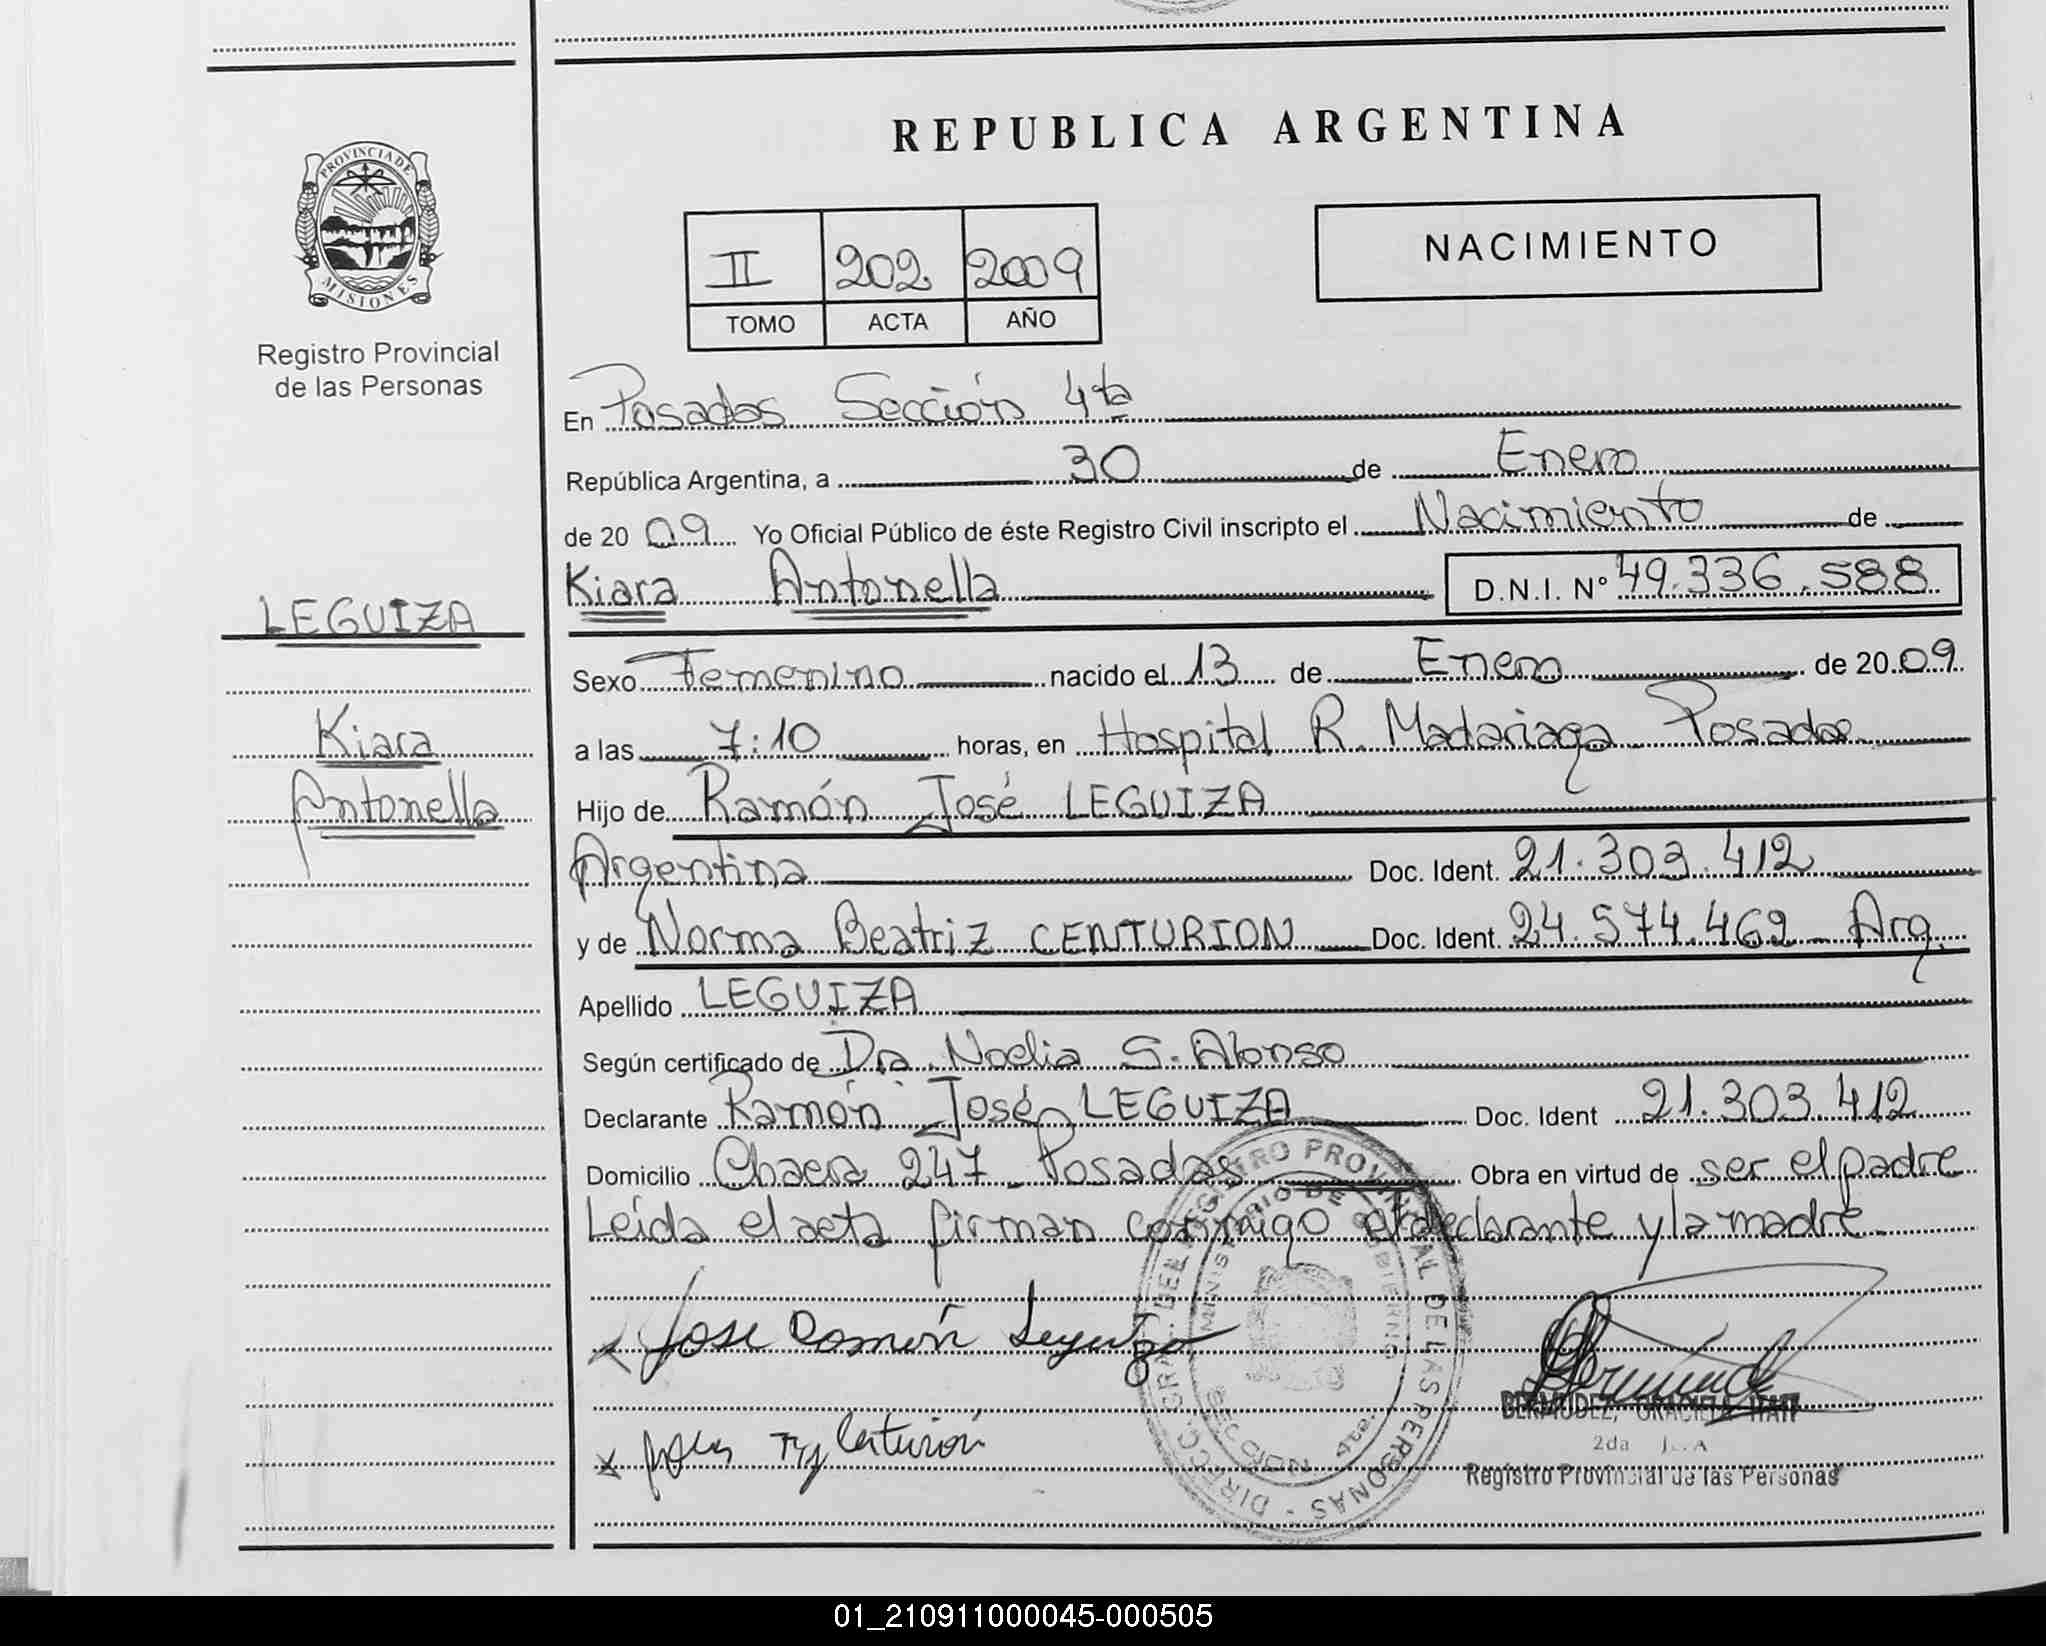 REPUBLICA ARGENTINA
PROVINCIA DE
MISIONES
Registro Provincial
de las Personas
NACIMIENTO
II 202 2009
TOMO ACTA AÑO
En Posadas Sección 4ta
República Argentina, a 30 de Enero
de 2009 Yo Oficial Público de éste Registro Civil inscripto el Nacimiento de
Kiara Antonella D.N.I. Nº 49.336.588
LEGUIZA
Kiara
Antonella
Sexo Femenino nacido el 13 de Enero de 2009
a las 7:10 horas, en Hospital R. Madariaga Posadas
Hijo de Ramón José LEGUIZA
Argentina Doc. Ident. 21.303.412
y de Norma Beatriz CENTURION Doc. Ident. 24.574.462 Arg.
Apellido LEGUIZA
Según certificado de Dra. Noelia S. Alonso
Declarante Ramón José LEGUIZA Doc. Ident 21.303.412
Domicilio Chacra 247 - Posadas Obra en virtud de ser el padre
Leída el acta firman conmigo el declarante y la madre.
Jose Ramón Leguiza
Centurión
DIRECC. GRAL. DEL REGISTRO PROVINCIAL DE LAS PERSONAS
MINISTERIO DE GOBIERNO
BERMUDEZ, GRACIELA
2da
Registro Provincial de las Personas
01_210911000045-000505